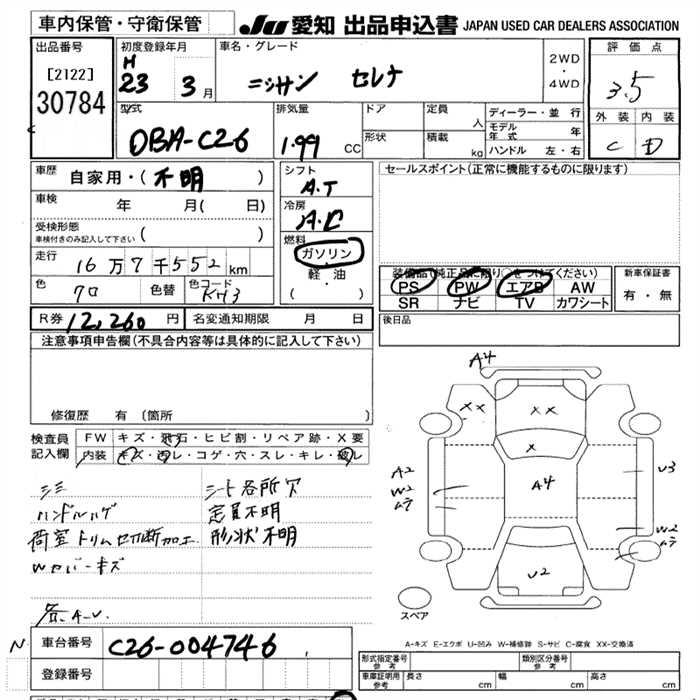 車内保管・守衛保管
JU 愛知 出品申込書 JAPAN USED CAR DEALERS ASSOCIATION
出品番号
[2122]
30784
初度登録年月
H
23 3月
車名・グレード
ニッサン セレナ
2WD
・
4WD
評価点
3.5
外装 内装
C D
型式
DBA-C26
排気量
1.99 CC
ドア
形状
定員 人
積載 kg
ディーラー・並行
モデル年式 年
ハンドル 左・右
車歴
自家用・(不明 )
車検 年 月( 日)
受検形態
車検付きのみ記入して下さい ( )
走行
16万7千552km
色 クロ 色替 色コード KH3
シフト
A.T
冷房
A.C
燃料
ガソリン
・
軽油
( )
セールスポイント(正常に機能するものに限ります)
装備品(純正品に限り○をつけてください)
PS PW エアB AW
SR ナビ TV カワシート
新車保証書
有・無
R券 12,260円 名変通知期限 月 日
後日品
注意事項申告欄(不具合内容等は具体的に記入して下さい)
修復歴 有(箇所
検査員
記入欄
FW キズ・飛石・ヒビ割・リペア跡・X要
内装 キズ・汚レ・コゲ・穴・スレ・キレ・破レ
シミ シート各所欠
ハンドルハゲ 定員不明
荷室トリム切断加工 形状不明
Wセバーキズ
各A-U
A4
XX
XX
X
A4
U2
A2
W2
U3
W2
スペア
A-キズ E-エクボ U-凹み W-補修跡 S-サビ C-腐食 XX-交換済
N
車台番号 C26-004746
登録番号
形式指定番号
参考
類別区分番号
参考
車庫証明用
参考
長さ cm 幅 cm 高さ cm